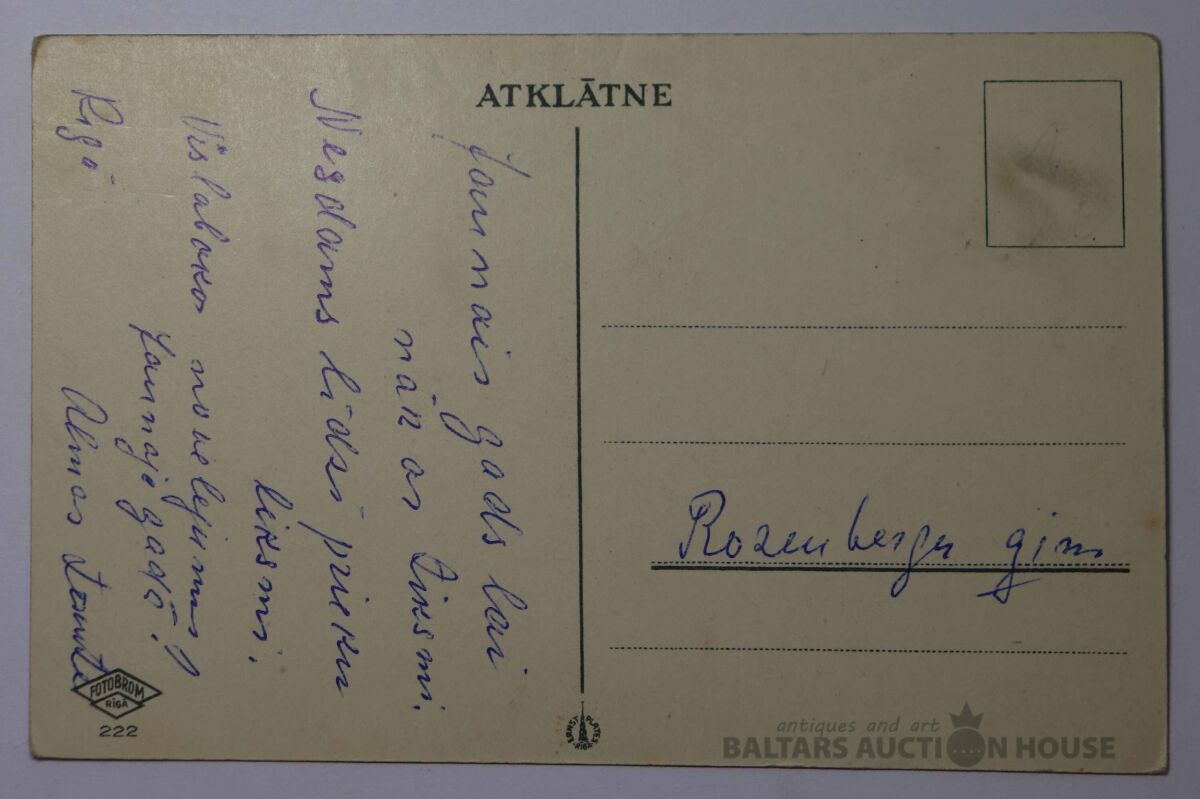 ATKLĀTNE
Jaunais gads lai
nāk ar
Nesdams līdsi prieku
liksmi.
Vislabako novelejumus
Jaunajā gadā!
Rigā
Almas
Rozenbergu gim
FOTOBROM
RĪGĀ
222
ERNST PLATES
RĪGĀ
antiques and art
BALTARS AUCTION HOUSE